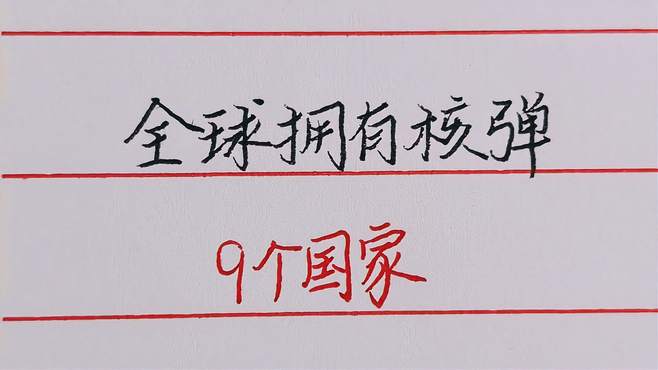 全球拥有核弹
9个国家